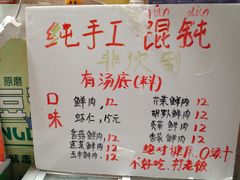 hún dùn
纯手工 馄饨
非预制
有汤底(料)
口味
鲜肉，12
虾仁，15元
香菇鲜肉 12
莲菜鲜肉，12
玉米鲜肉，12
芹菜鲜肉，12
胡萝鲜肉，12
荠菜鲜肉 12
香菜鲜肉，12
绝对健康，0添加
不好吃，打老板
原磨